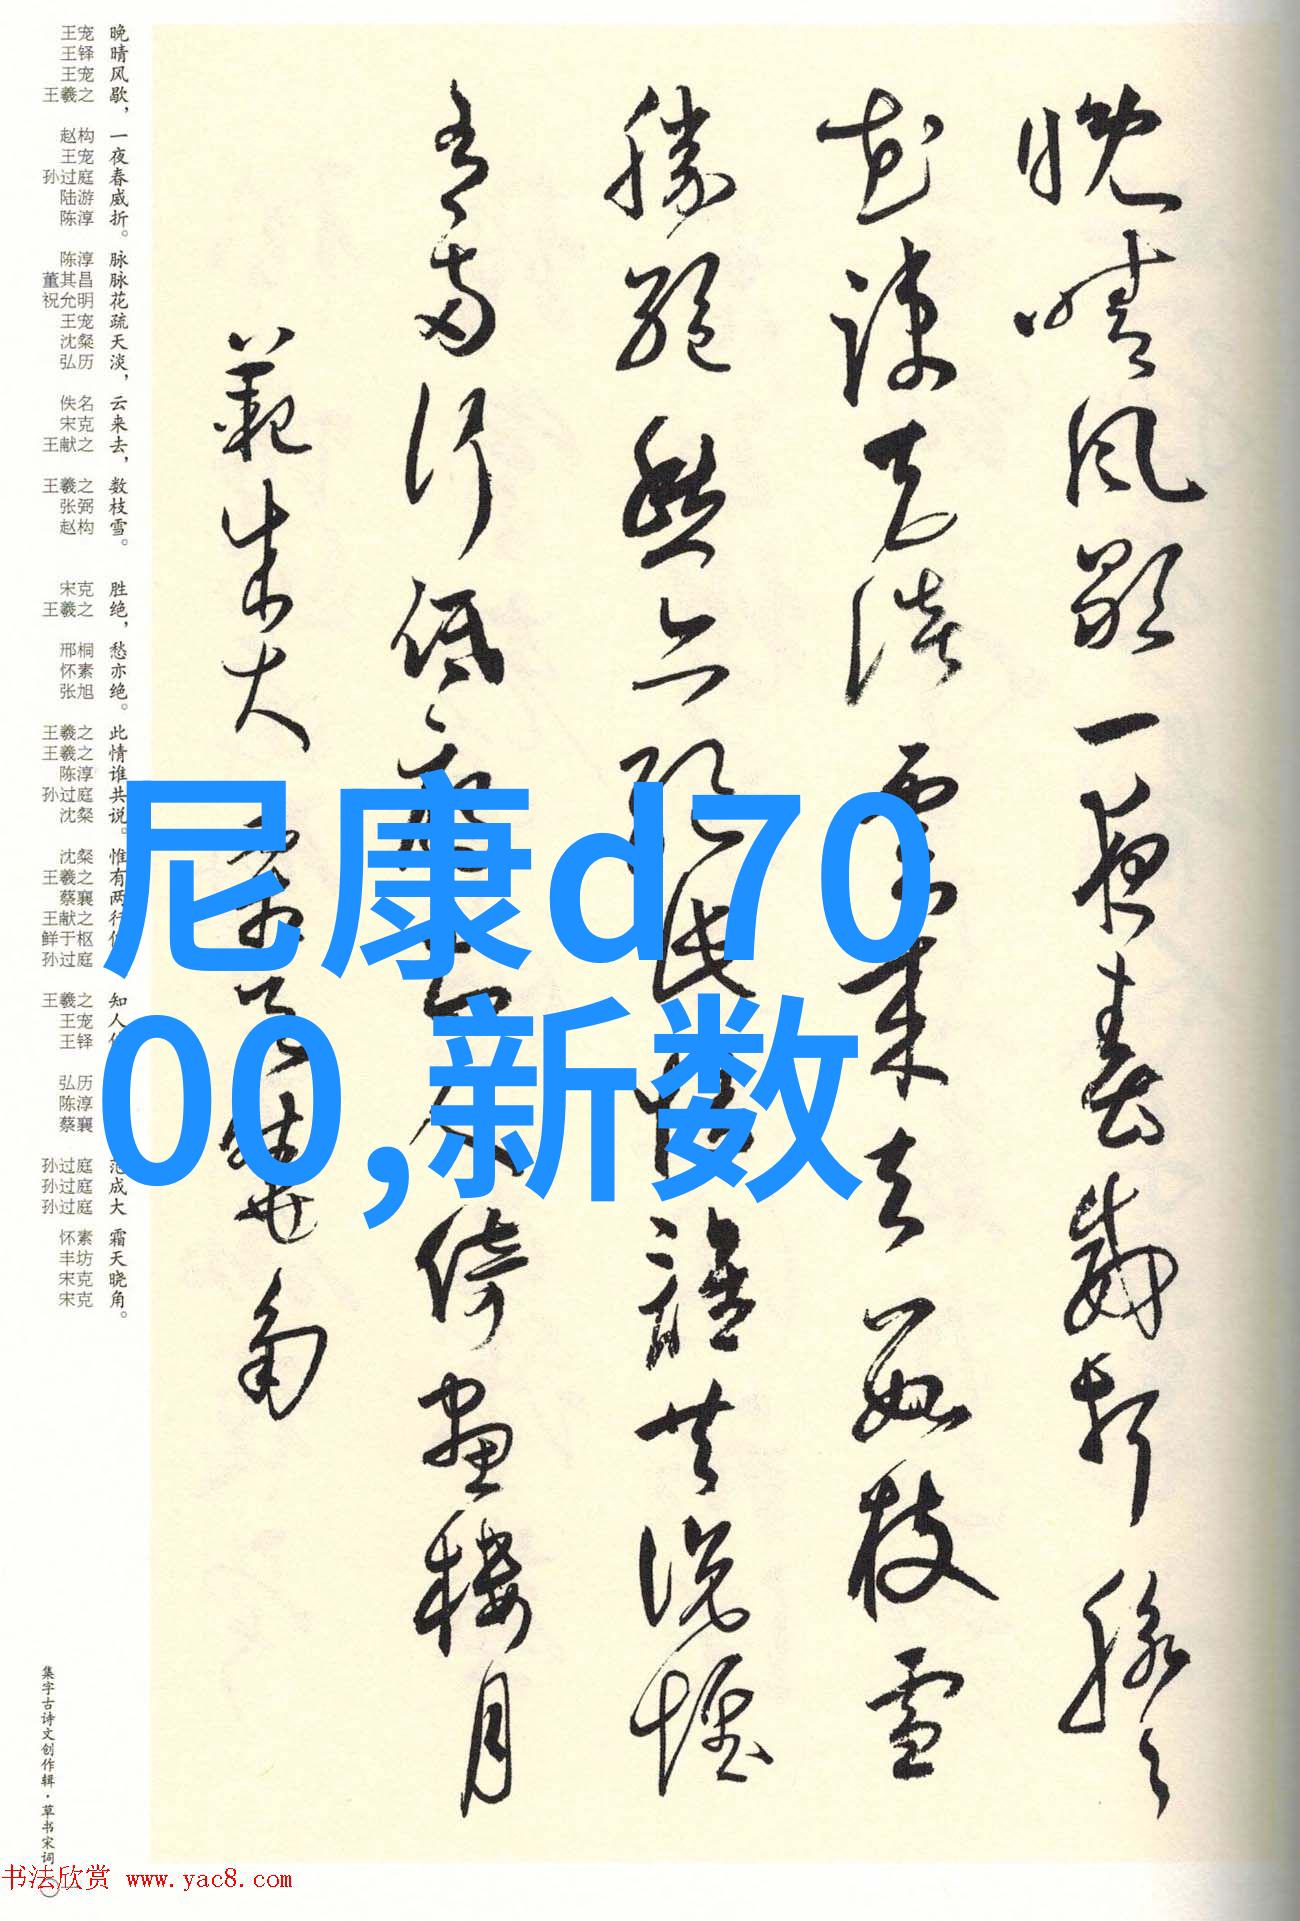 晚晴風歇一夜春威折脈々
花疎天淡雲来去數枝雪
勝絕愁亦絕此情誰共說惟
有兩行低雁知人倚畫樓月
範成大霜天曉角
晚晴风歇，一夜春威折。脉脉花疏天淡，云来去，数枝雪。 胜绝，愁亦绝。此情谁共说。惟有两行 知人 成大 霜天晓角。
王宠 王铎 王宠 王羲之 赵构 王宠 孙过庭 陆游 陈淳 陈淳 董其昌 祝允明 王宠 沈粲 弘历 佚名 宋克 王献之 王羲之 张弼 赵构 宋克 王羲之 邢桐 怀素 张旭 王羲之 王羲之 陈淳 孙过庭 沈粲 沈粲 王羲之 蔡襄 王献之 鲜于枢 孙过庭 王羲之 王宠 王铎 弘历 陈淳 蔡襄 孙过庭 孙过庭 孙过庭 怀素 丰坊 宋克 宋克
集字古诗文创作辑·草书宋词
尼康d70
00,新数
书法欣赏 www.yac8.com